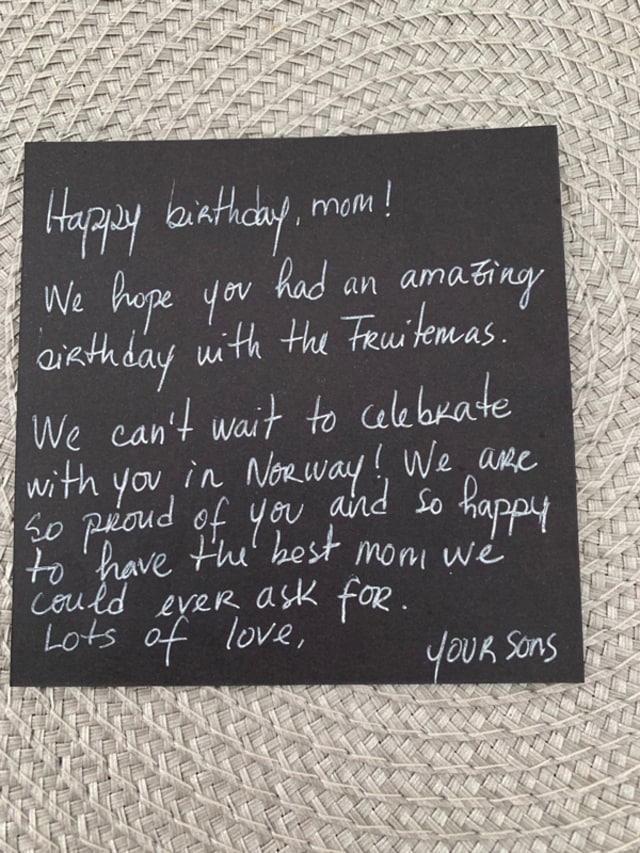 Happy birthday, mom!
We hope you had an amazing
birthday with the Fruitemas.
We can't wait to celebrate
with you in Norway! We are
so proud of you and so happy
to have the best mom we
could ever ask for.
Lots of love,
your sons